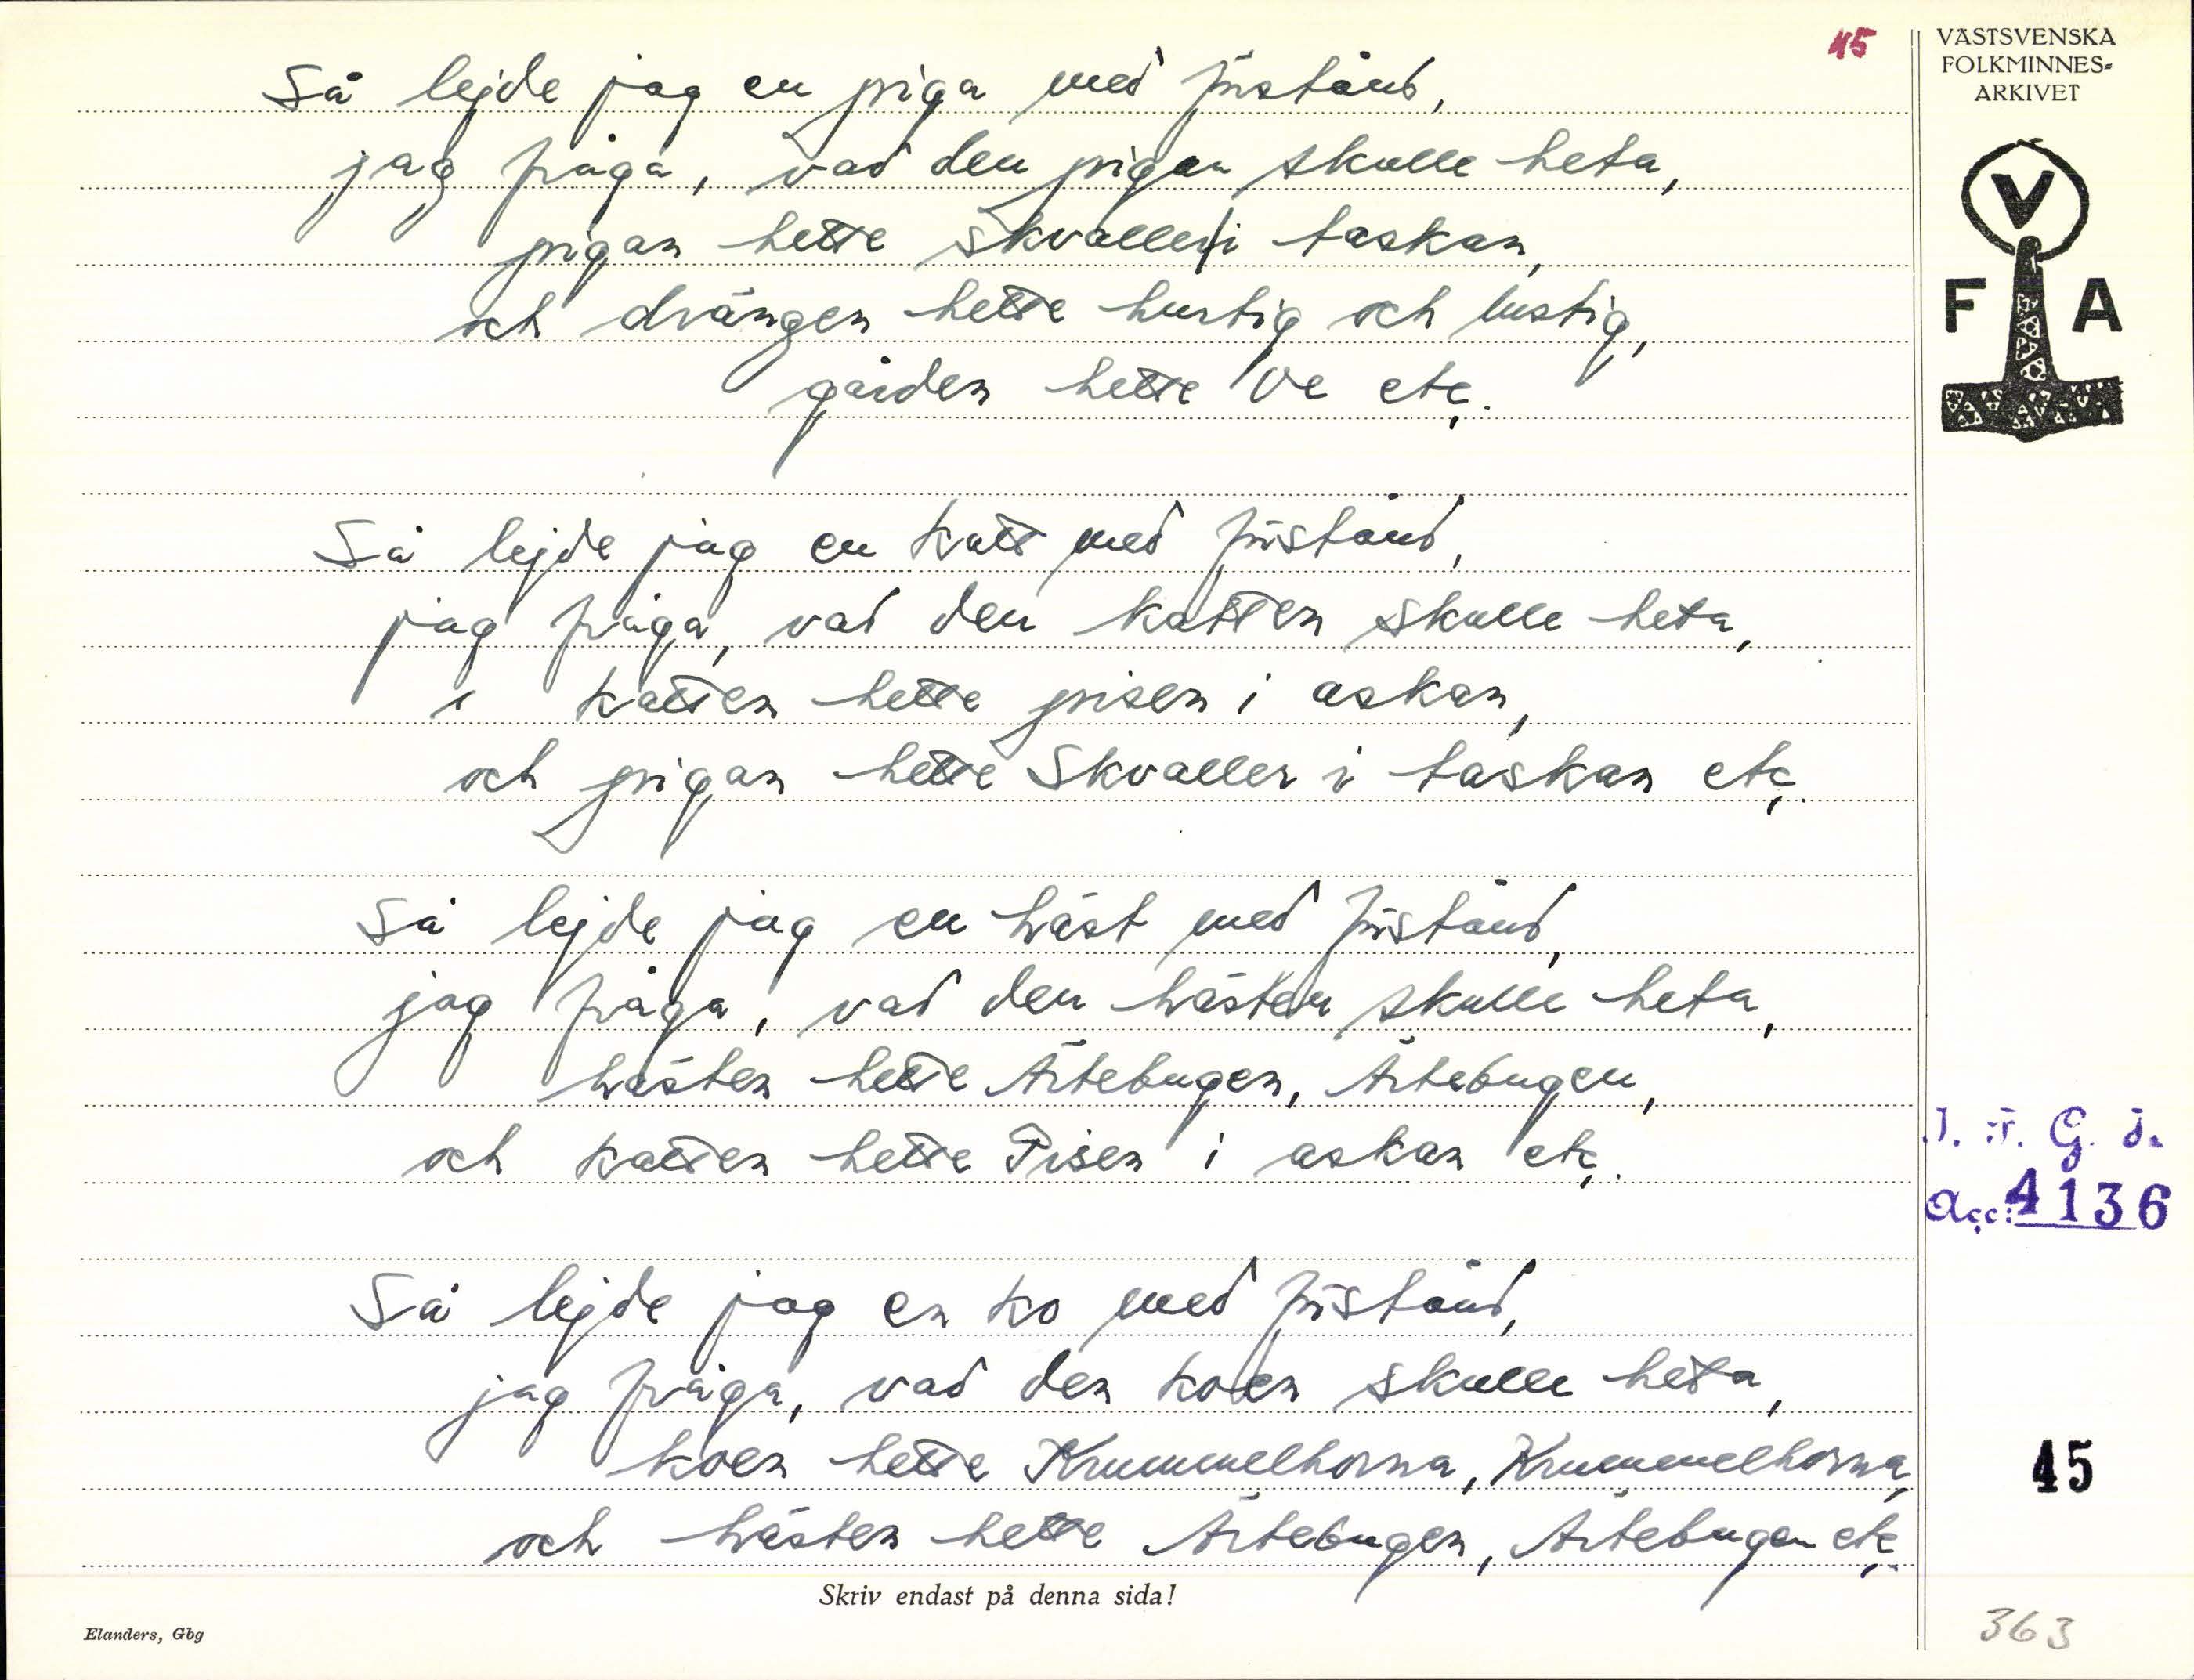 45
VÄSTSVENSKA
FOLKMINNES-
ARKIVET
V
F A
Så lejde jag en piga med förstånd,
jag fråga, vad den pigan skulle heta,
pigan hette Skvaller i taskan,
och drängen hette hurtig och lustig,
gården hette Ve etc.
Så lejde jag en katt med förstånd,
jag fråga, vad den katten skulle heta,
katten hette pisen i askan,
och pigan hette Skvaller i taskan etc.
Så lejde jag en häst med förstånd,
jag fråga, vad den hästen skulle heta,
hästen hette Ärtebugen, Ärtebugen,
och katten hette Pisen i askan etc.
I. F. G. s.
Acc: 4136
Så lejde jag en ko med förstånd,
jag fråga, vad den koen skulle heta,
koen hette Krummelhorna, Krummelhorna,
och hästen hette Ärtebugen, Ärtebugen etc.
45
Skriv endast på denna sida!
Elanders, Gbg
363